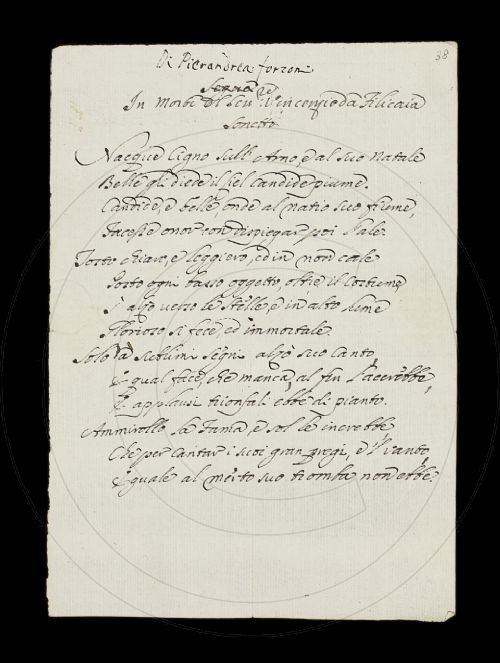 38
Di Pierandrea forzoni
Senna.re
In Morte del Sen: Vincenzo da Filicaia
Sonetto
Nacque Cigno sull' Arno, e al suo Natale
Belle gli diede il Ciel candide piume.
Candide, e belle, onde al natio suo fiume,
Facesse onor con dispiegar poi l'ale.
Tosto chiaro, e leggiero, ed in non cale
Posto ogni basso oggetto, oltre il costume
S' alzò verso le stelle, e in alto lume
Glorioso si fece, ed immortale.
Solo a sublimi segni alzò suo canto,
E qual face, che manca, al fin l'accrebbe,
E applausi trionfali ebbe di pianto.
Ammirollo la Fama, e sol le increbbe
Che per cantar i suoi gran pregi, e 'l vanto,
Eguale al merto suo tromba non ebbe.